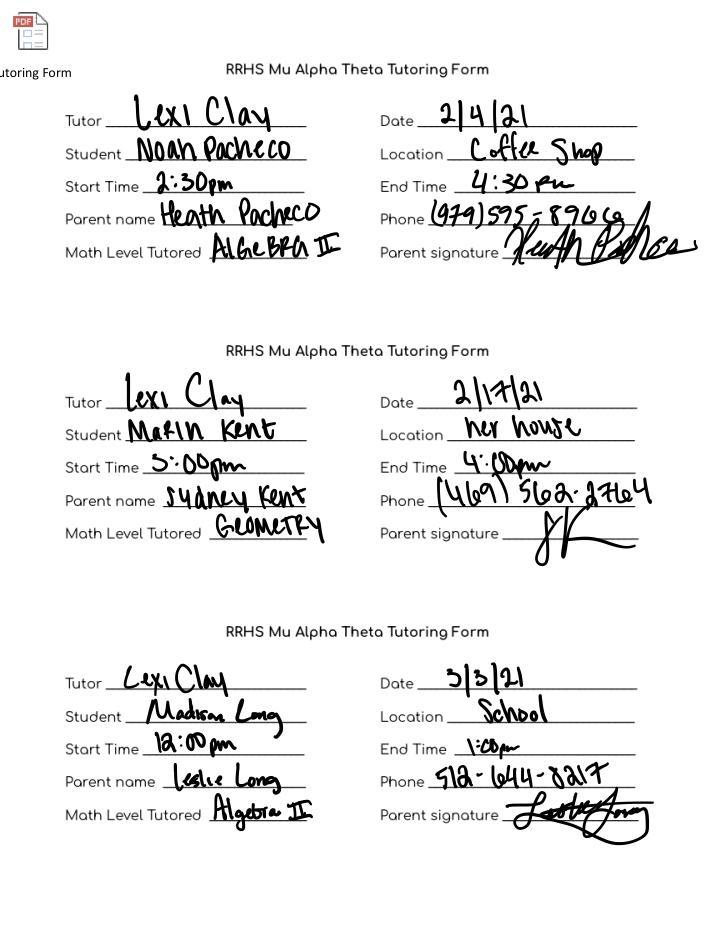 PDF
utoring Form
RRHS Mu Alpha Theta Tutoring Form
Tutor Lexi Clay Date 2/4/21
Student Noah Pacheco Location Coffee Shop
Start Time 2:30pm End Time 4:30 pm
Parent name Heath Pacheco Phone (979)595-8966
Math Level Tutored ALGEBRA II Parent signature Heath Pacheco
RRHS Mu Alpha Theta Tutoring Form
Tutor Lexi Clay Date 2/17/21
Student Marin Kent Location her house
Start Time 3:00pm End Time 4:00pm
Parent name Sydney Kent Phone (469) 562-2764
Math Level Tutored GEOMETRY Parent signature SK
RRHS Mu Alpha Theta Tutoring Form
Tutor Lexi Clay Date 3/3/21
Student Madison Long Location School
Start Time 12:00pm End Time 1:00pm
Parent name Leslie Long Phone 512-644-8217
Math Level Tutored Algebra II Parent signature Leslie Long